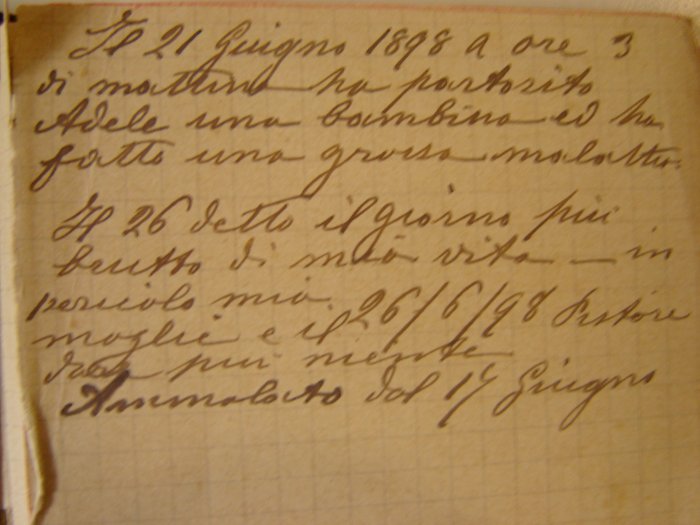 Il 21 Giugno 1898 a ore 3
di mattina ha partorito
Adele una bambina ed ha
fatto una grossa malattia.
Il 26 detto il giorno più
brutto di mia vita — in
pericolo mia
moglie e il 26/6/98
più niente
Ammalato dal 17 Giugno